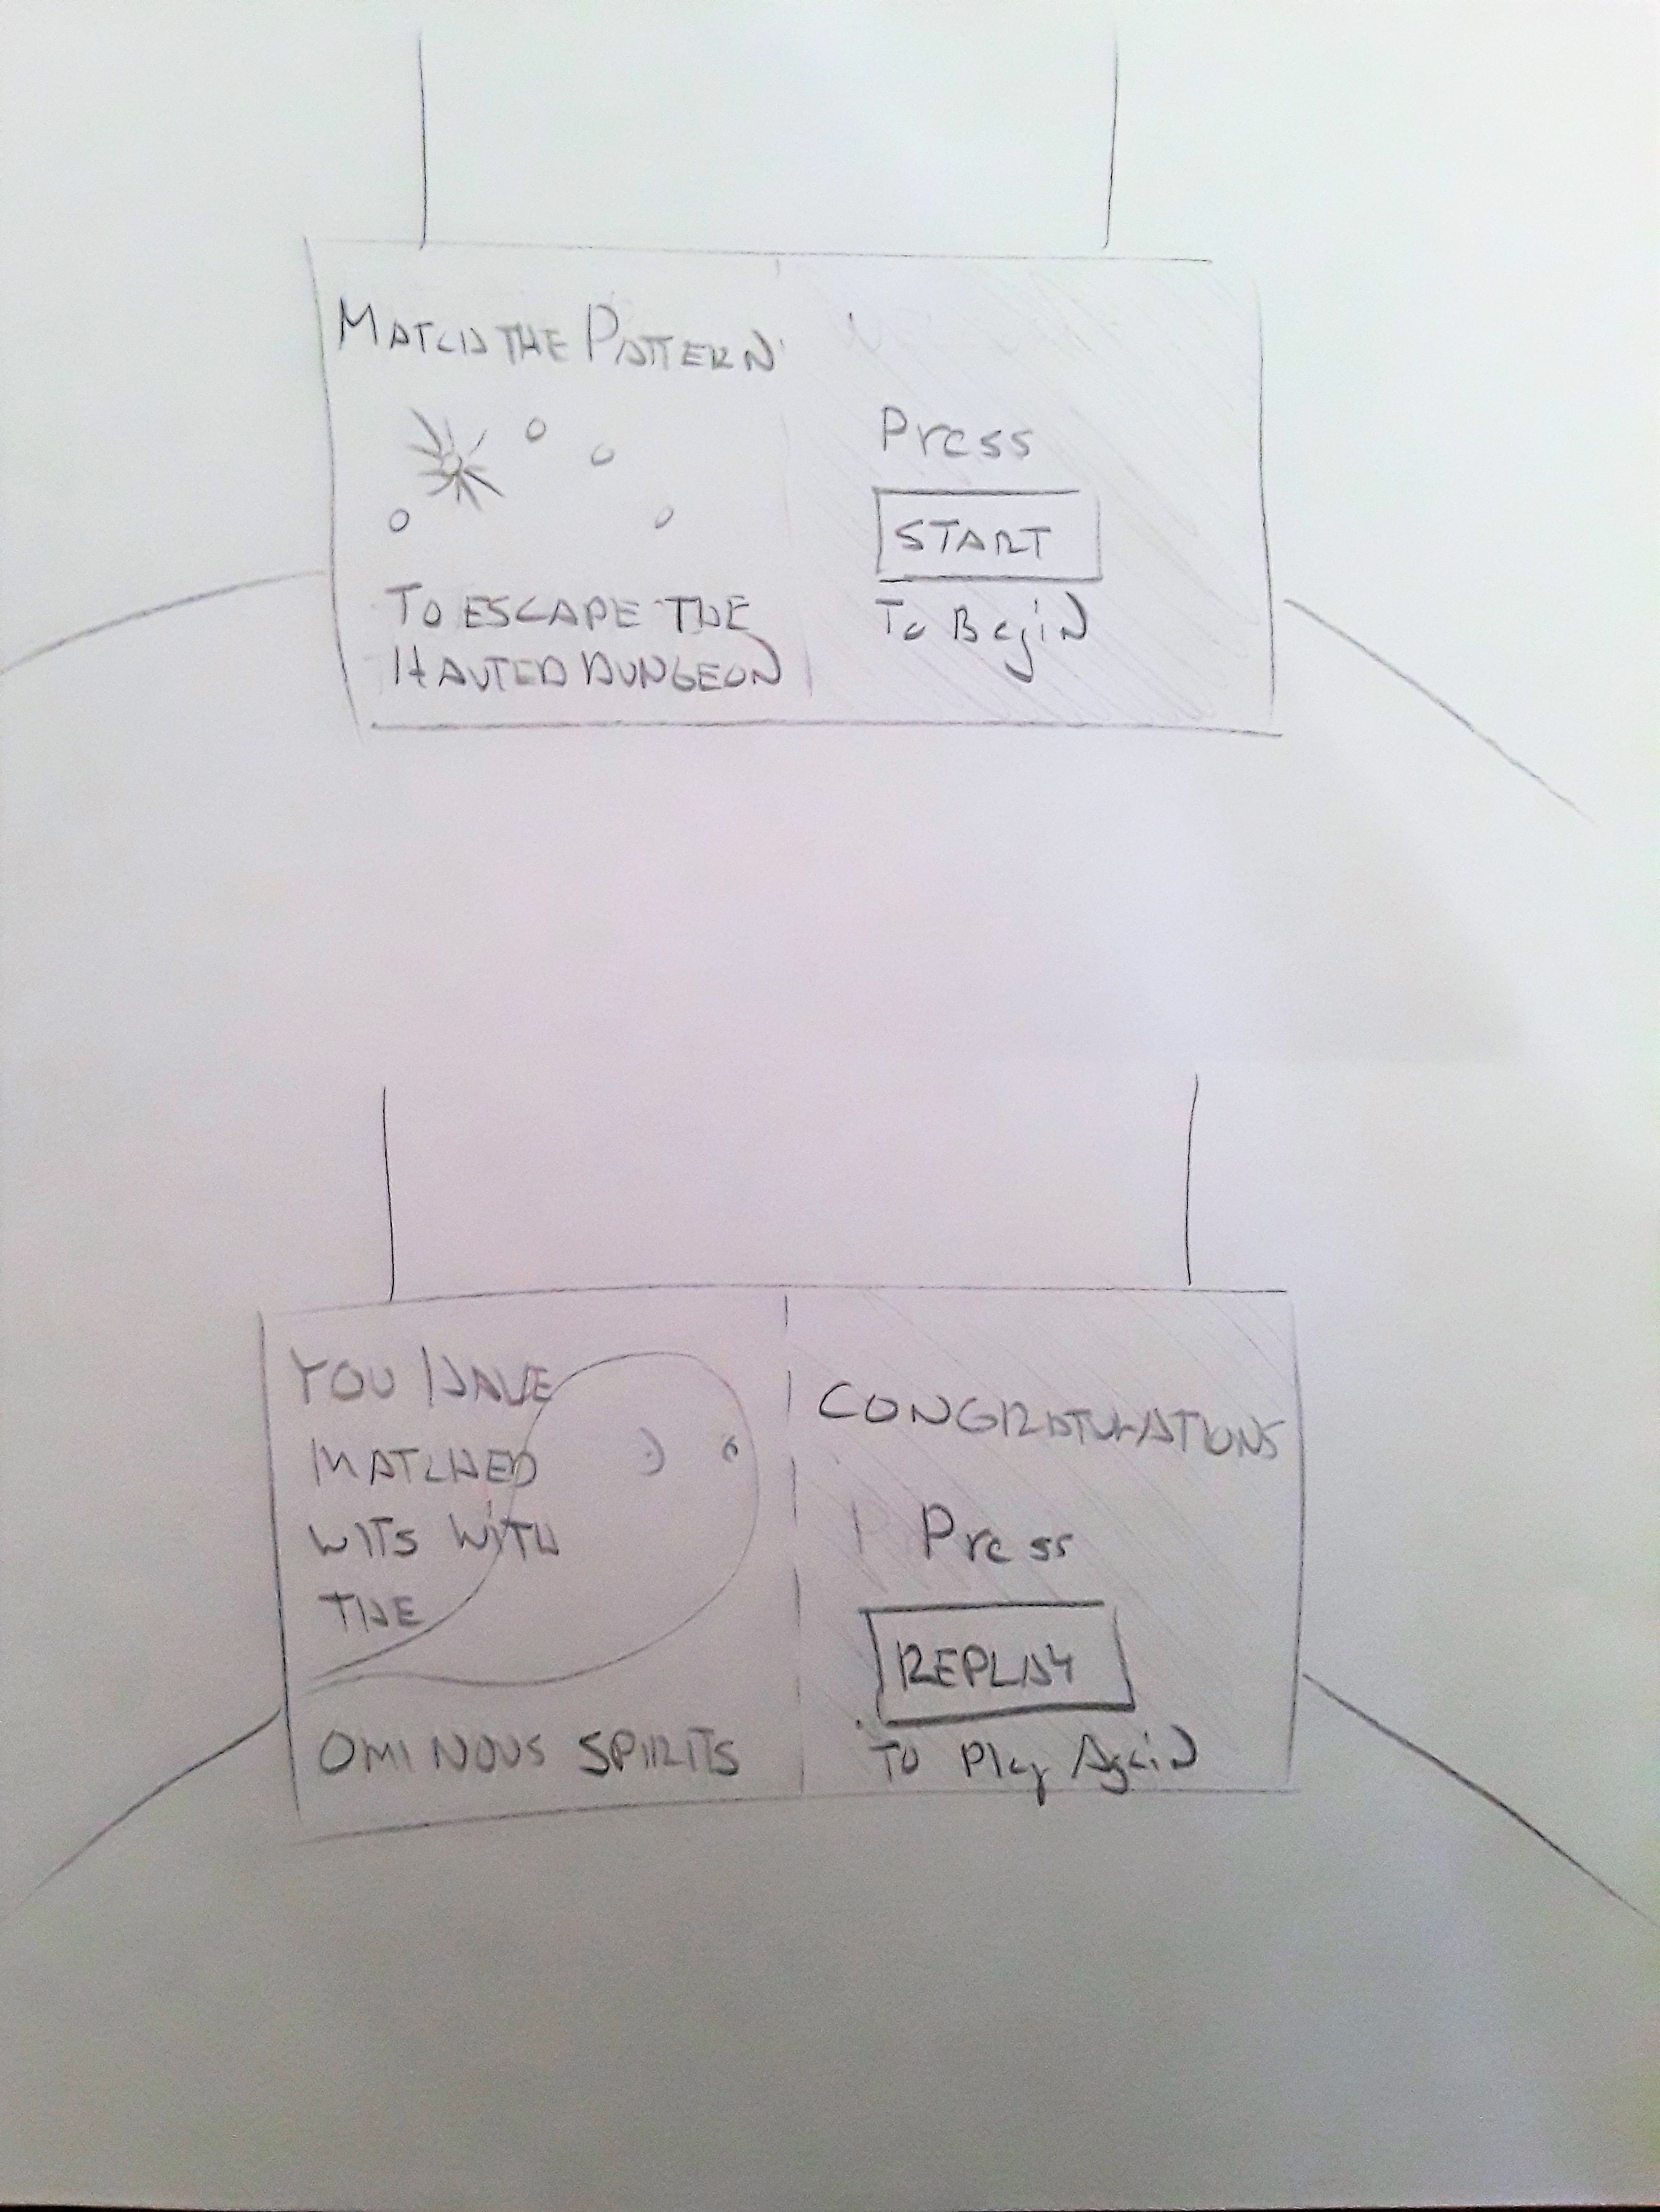 MATCH THE PATTERN
TO ESCAPE THE
HAUTED DUNGEON
Press
START
To Begin
YOU HAVE
MATCHED
WITS WITH
THE
OMINOUS SPIRITS
CONGRATULATIONS
Press
REPLAY
To Play Again